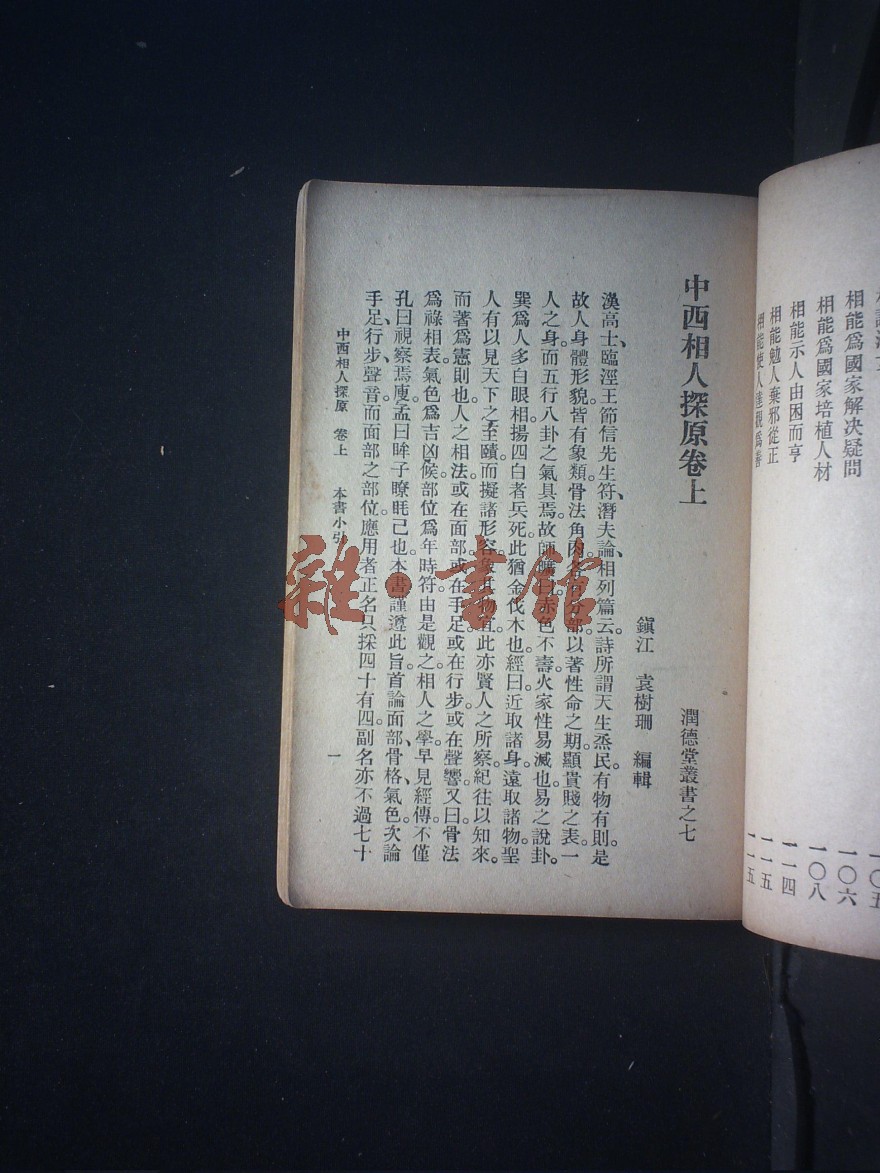 相能爲國家解决疑問
一〇六
相能爲國家培植人材
一〇八
相能示人由困而亨
一一四
相能勉人棄邪從正
一一五
相能使人達觀爲善
一二五
中西相人探原卷上
潤德堂叢書之七
鎭江 袁樹珊 編輯
漢高士、臨涇王節信先生符、潛夫論、相列篇云。詩所謂天生烝民有物有則。是
故人身體形貌皆有象類。骨法角肉各有分部。以著性命之期。顯貴賤之表。一
人之身。而五行八卦之氣具焉。故師曠曰。赤色不壽。火家性易滅也。易之說卦。
巽爲人多白眼。相揚四白者兵死。此猶金伐木也。經曰。近取諸身。遠取諸物。聖
人有以見天下之至賾。而擬諸形容。象其物宜。此亦賢人之所察。紀往以知來。
而著爲憲則也。人之相法。或在面部。或在手足。或在行步。或在聲響。又曰。骨法
爲祿相表。氣色爲吉凶候。部位爲年時符。由是觀之。相人之學。早見經傳。不僅
孔曰視察焉廋。孟曰眸子瞭眊已也。本書謹遵此旨。首論面部、骨格、氣色。次論
手足、行步、聲音。而面部之部位。應用者。正名只採四十有四。副名亦不過七十
中西相人探原 卷上 本書小引
一
雜·書館